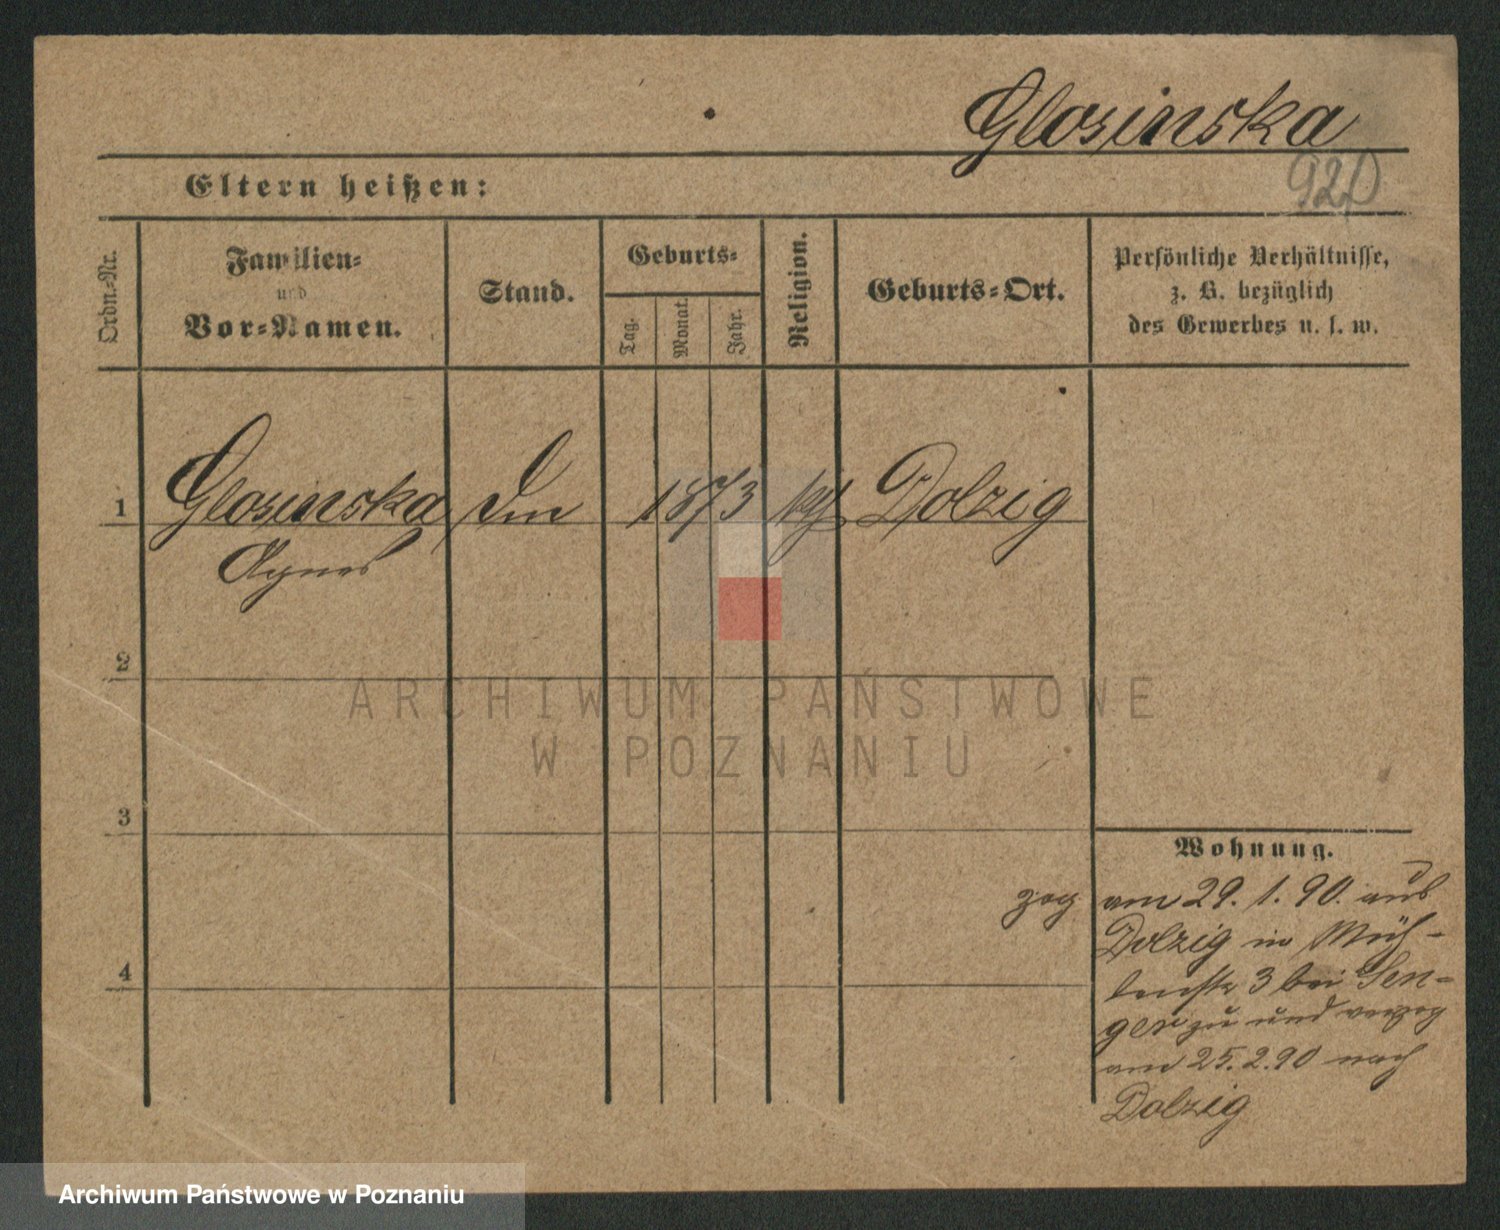 Glosinska
920
Eltern heißen:
Ordn.-Nr.
Familien-
und
Vor-Namen.
Stand.
Geburts-
Tag.
Monat.
Jahr.
Religion.
Geburts-Ort.
Persönliche Verhältnisse,
z. B. bezüglich
des Gewerbes u. s. w.
1 Glosinska 1873 Dolzig
Agnes
2
3
4
ARCHIWUM PAŃSTWOWE
W POZNANIU
Wohnung.
zog am 29. 1. 90. aus
Dolzig in Müh-
lenstr 3 bei Sen-
ger zu und verzog
am 25. 2. 90 nach
Dolzig
Archiwum Państwowe w Poznaniu